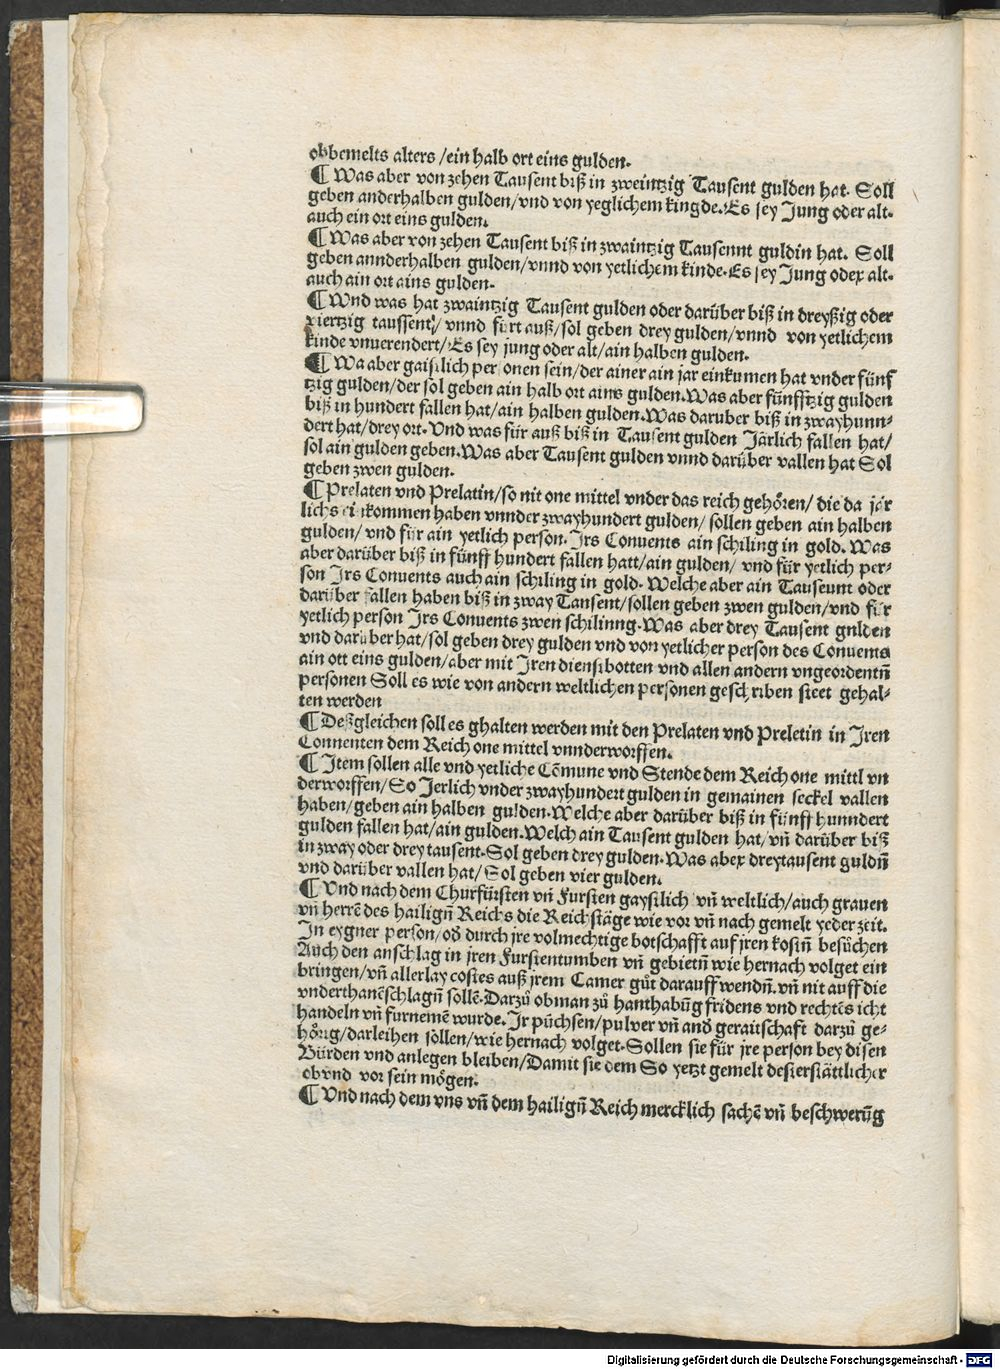 obbemelts alters /ein halb ort eins gulden.
¶ Was aber von zehen Tausent biß in zweintzig Tausent gulden hat. Soll
geben anderhalben gulden/vnd von yeglichem kingde. Es sey Jung oder alt.
auch ein ort eins gulden.
¶ Was aber von zehen Tausent biß in zwaintzig Tausennt guldin hat. Soll
geben annderhalben gulden/vnnd von yetlichem kinde. Es sey Jung oder alt.
auch ain ort ains gulden.
¶ Wnd was hat zwaintzig Tausent gulden oder darüber biß in dreyßig oder
viertzig taussent/ vnnd fürt auß/sol geben drey gulden/vnnd von yetlichem
kinde vnuerendert/ Es sey jung oder alt/ain halben gulden.
¶ Wa aber gaistlich personen sein/der ainer ain jar einkumen hat vnder fünf
tzig gulden/der sol geben ain halb ort ains gulden. Was aber fünfftzig gulden
biß in hundert fallen hat/ain halben gulden. Was daruber biß in zwayhunn-
dert hat/drey ort. Vnd was für auß biß in Tausent gulden Järlich fallen hat/
sol ain gulden geben. Was aber Tausent gulden vnnd darüber vallen hat Sol
geben zwen gulden.
¶ Prelaten vnd Prelatin/so nit one mittel vnder das reich gehören/ die da jär
lichs einkommen haben vnnder zwayhundert gulden/ sollen geben ain halben
gulden/ vnd für ain yetlich person. Irs Conuents ain schiling in gold. Was
aber darüber biß in fünff hundert fallen hatt/ain gulden/ vnd für yetlich per-
son Irs Conuents auch ain schiling in gold. Welche aber ain Tauseunt oder
darüber fallen haben biß in zway Tansent/sollen geben zwen gulden/vnd für
yetlich person Irs Conuents zwen schilinng. Was aber drey Tausent gnlden
vnd darüber hat/sol geben drey gulden vnd von yetlicher person des Conuents
ain ott eins gulden/aber mit Iren dienstbotten vnd allen andern vngeordentn̄
personen Soll es wie von andern weltlichen personen geschriben steet gehal-
ten werden
¶ Deßgleichen soll es ghalten werden mit den Prelaten vnd Preletin in Iren
Connenten dem Reich one mittel vnnderworffen.
¶ Item sollen alle vnd yetliche Cōmune vnd Stende dem Reich one mittl vn
derworffen/So Jerlich vnder zwayhundert gulden in gemainen seckel vallen
haben/geben ain halben gulden. Welche aber darüber biß in fünff hunndert
gulden fallen hat/ain gulden. Welch ain Tausent gulden hat/vn̄ darüber biß
in zway oder drey tausent. Sol geben drey gulden. Was aber dreytausent guldn̄
vnd darüber vallen hat/ Sol geben vier gulden.
¶ Vnd nach dem Churfürsten vn̄ Fursten gaystlich vn̄ weltlich/auch grauen
vn̄ herrē des hailign̄ Reichs die Reichstäge wie vor vn̄ nach gemelt yeder zeit.
In eygner person/od̄ durch jre volmechtige botschafft auf jren kostn̄ besůchen
Auch den anschlag in jren Furstentumben vn̄ gebietn̄ wie hernach volget ein
bringen/vn̄ allerlay costes auß jrem Camer gůt darauff wendn̄. vn̄ nit auff die
vnderthanē schlagn̄ sollē. Darzů obman zů hanthabūg fridens vnd rechtēs icht
handeln vn̄ furnemē wurde. Ir püchsen/puluer vn̄ and̄ geraitschaft darzů ge-
hörig/darleihen sollen/wie hernach volget. Sollen sie für jre person bey disen
Bürden vnd anlegen bleiben/Damit sie dem So yetzt gemelt desterstättlicher
obvnd vor sein mögen.
¶ Vnd nach dem vns vn̄ dem hailign̄ Reich mercklich sachē vn̄ beschwerūg
Digitalisierung gefördert durch die Deutsche Forschungsgemeinschaft - DFG